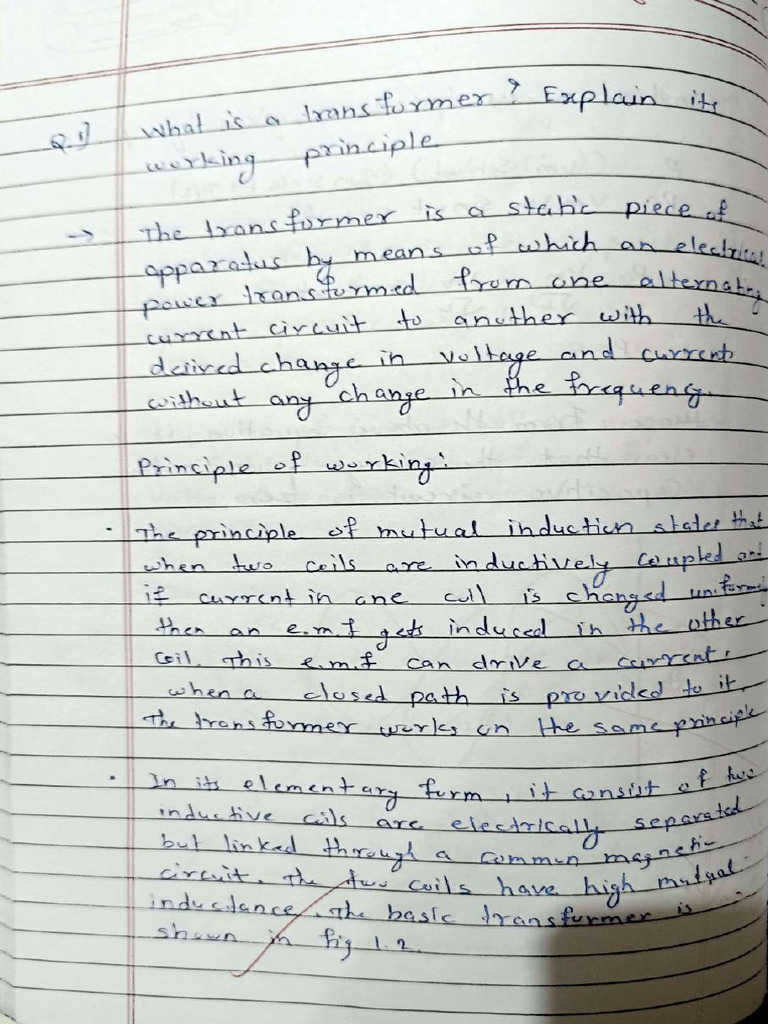 Q.1) What is a transformer? Explain its
working principle.
→ The transformer is a static piece of
apparatus by means of which an electrical
power transformed from one alternating
current circuit to another with the
desired change in voltage and current
without any change in the frequency.
Principle of working:
• The principle of mutual induction states that
when two coils are inductively coupled and
if current in one coil is changed uniformly
then an e.m.f gets induced in the other
coil. This e.m.f can drive a current,
when a closed path is provided to it.
The transformer works on the same principle
• In its elementary form, it consist of two
inductive coils are electrically separated
but linked through a common magnetic
circuit. The two coils have high mutual
inductance. The basic transformer is
shown in fig 1.2.